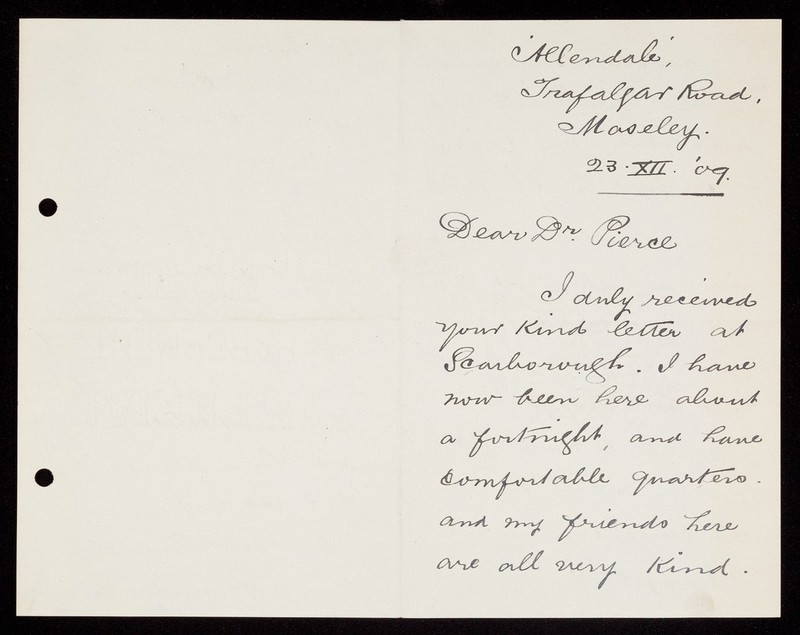 'Allendale',
Trafalgar Road,
Moseley.
23. XII. '09.
Dear Dr. Pierce
I duly received
your kind letter at
Scarborough. I have
now been here about
a fortnight, and have
comfortable quarters.
and my friends here
are all very kind.